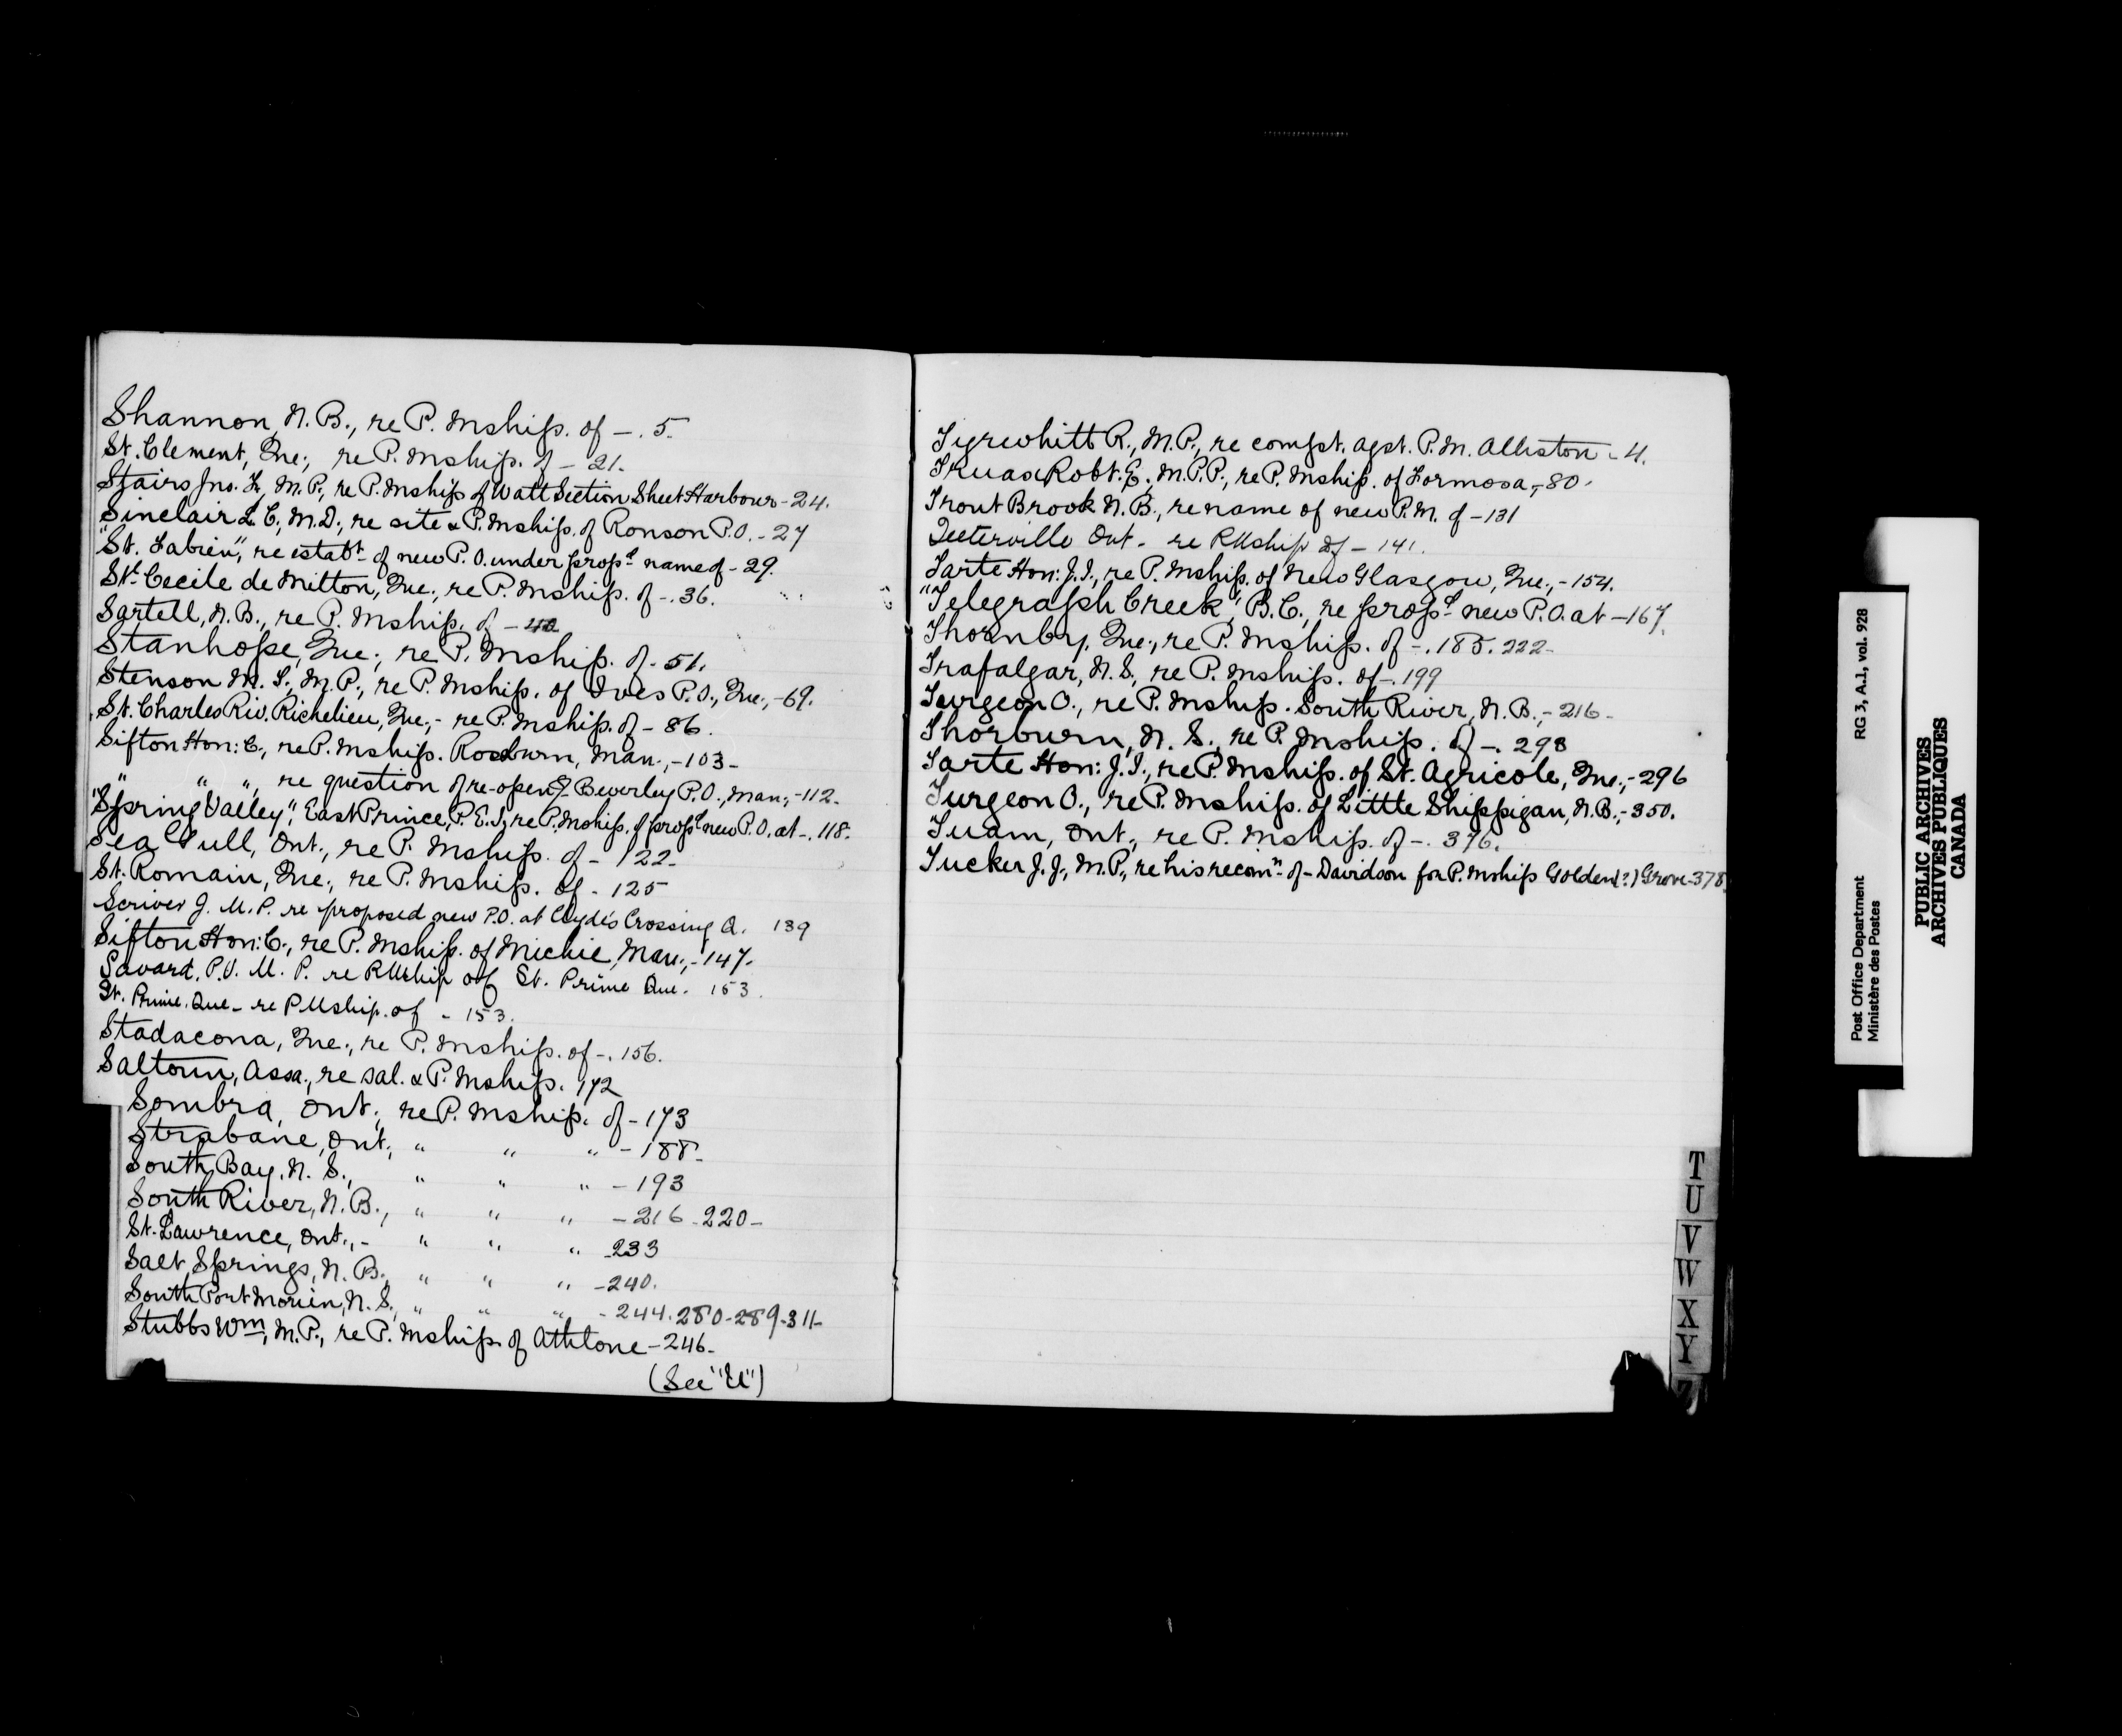 Shannon, N.B., re P. Mship. of -. 5.
St. Clement, Que., re P. Mship. of - 21.
Stairs Jno. F., M.P., re P. Mship of Watt Section Sheet Harbour - 24.
Sinclair L. C., M.D., re site & P. Mship. of Ronson P.O. - 27
"St. Fabien", re establt of new P.O. under propd name of - 29.
Ste Cecile de Milton, Que., re P. Mship. of -. 36.
Sartell, N.B., re P. Mship. of - 42
Stanhope, Que., re P. Mship. of - 51.
Stenson M. T., M.P., re P. Mship. of Ives P.O., Que., - 69.
St. Charles Riv. Richelieu, Que., - re P. Mship. of - 86.
Sifton Hon: C., re P. Mship. Rossburn, Man., - 103 -
" " ", re question of re-openg Beverley P.O., Man., - 112.
"Spring Valley", East Prince, P.E.I., re P. Mship. of propd new P.O. at -. 118.
Sea Gull, Ont., re P. Mship. of - 122 -
St. Romain, Que., re P. Mship. of - 125
Scriver J. M.P. re proposed new P.O. at Clyde's Crossing Q. 139
Sifton Hon: C., re P. Mship. of Michie, Man., - 147.
Savard, P.V. M.P. re P Mship of St. Prime Que. 153.
St. Prime, Que - re P Mship. of - 153.
Stadacona, Que., re P. Mship. of -. 156.
Saltoun, Assa., re sal. & P. Mship. 172
Sombra, Ont., re P. Mship. of - 173
Strabane, Ont., " " " - 188 -
South Bay, N.S., " " " - 193
South River, N.B., " " " - 216 - 220 -
St. Lawrence, Ont., - " " " - 233
Salt Springs, N.B., " " " - 240.
South Port Morien, N.S., " " " - 244. 280 - 289 - 311 -
Stubbs Wm, M.P., re P. Mship. of Athlone - 246 -
(See "U")
Tyrwhitt R., M.P., re compt. agst. P.M. Alliston - 4.
Truax Robt. E., M.P.P., re P. Mship. of Formosa, - 80.
Trout Brook N.B., re name of new P.M. of - 131
Teeterville Ont - re P Mship of - 141.
Tarte Hon: J.I., re P. Mship. of New Glasgow, Que., - 154.
"Telegraph Creek", B.C., re propd new P.O. at - 167.
Thornby, Que., re P. Mship. of -. 185. 222 -
Trafalgar, N.S., re P. Mship. of -. 199
Turgeon O., re P. Mship. South River, N.B., - 216 -
Thorburn, N.S., re P. Mship. of -. 298
Tarte Hon: J.I., re P. Mship. of St. Agricole, Que., - 296
Turgeon O., re P. Mship. of Little Shippigan, N.B., - 350.
Tuam, Ont., re P. Mship. of -. 376.
Tucker J.J., M.P., re his recomn of - Davidson for P. Mship Golden (?) Grove - 378
T
U
V
W
X
Y
Z
RG 3, A.1, vol. 928
Post Office Department
Ministère des Postes
PUBLIC ARCHIVES
ARCHIVES PUBLIQUES
CANADA